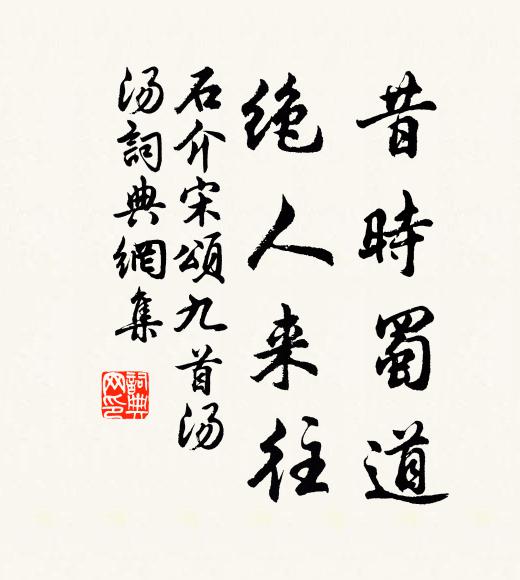 昔時蜀道
绝人来往
石介宋頌九首汤
汤詞典網集
詞典网印